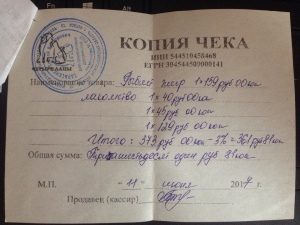 КОПИЯ ЧЕКА
ИНН 544510458468
ЕГРН 304544509000141
Наименование товара: 1×159 руб 00 коп
лакомство 1×40 руб 00 коп
1×45 руб 00 коп
1×129 руб 00 коп
Итого: 373 руб 00 коп - 3% = 361 руб 81 коп
Общая сумма: Триста шестьдесят один руб 81 коп
М.П. "11" июля 2017 г.
Продавец (кассир)